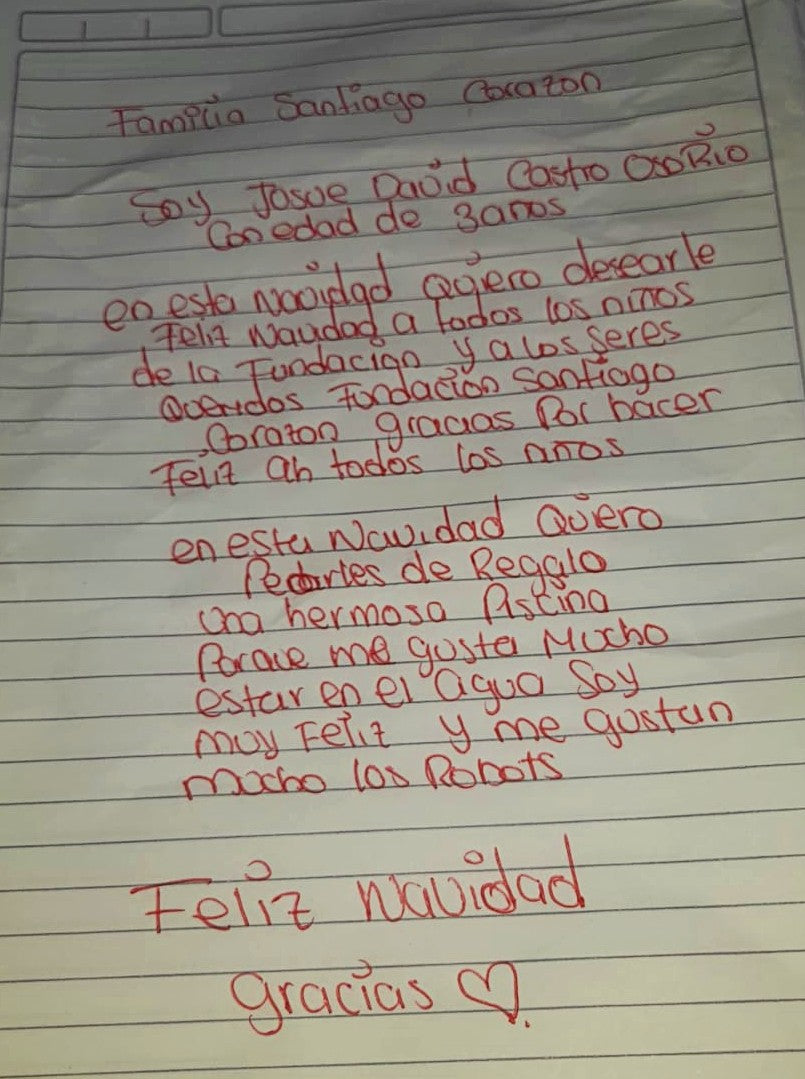 Familia Santiago Corazon
Soy Josue David Castro OsoRio
Con edad de 3 anos
en esta navidad Quiero desearle
Feliz Navidad a todos los niños
de la Fundacion y a los seres
Queridos Fundacion Santiago
Corazon gracias Por hacer
Feliz ah todos los niños
en esta Navidad Quiero
Pedirles de Regalo
una hermosa Piscina
Porque me gusta Mucho
estar en el agua Soy
muy Feliz y me gustan
mucho los Robots
Feliz Navidad
gracias ♡.